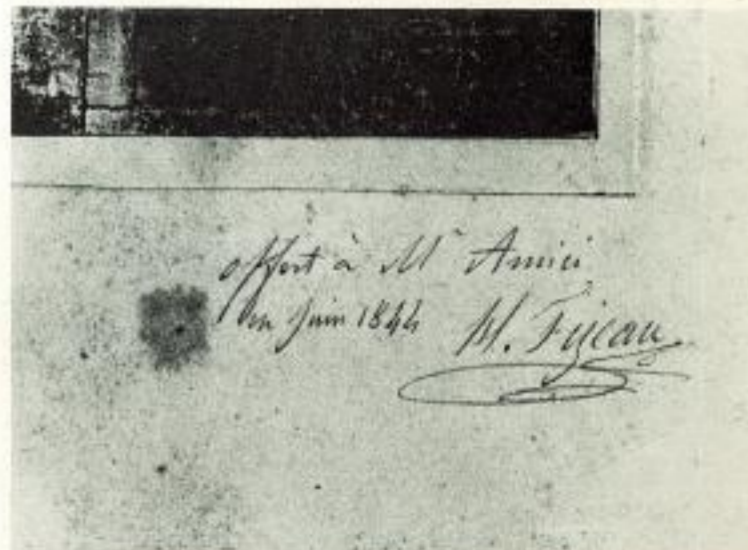 offert à Mr Amici
en Juin 1844 H. Fizeau